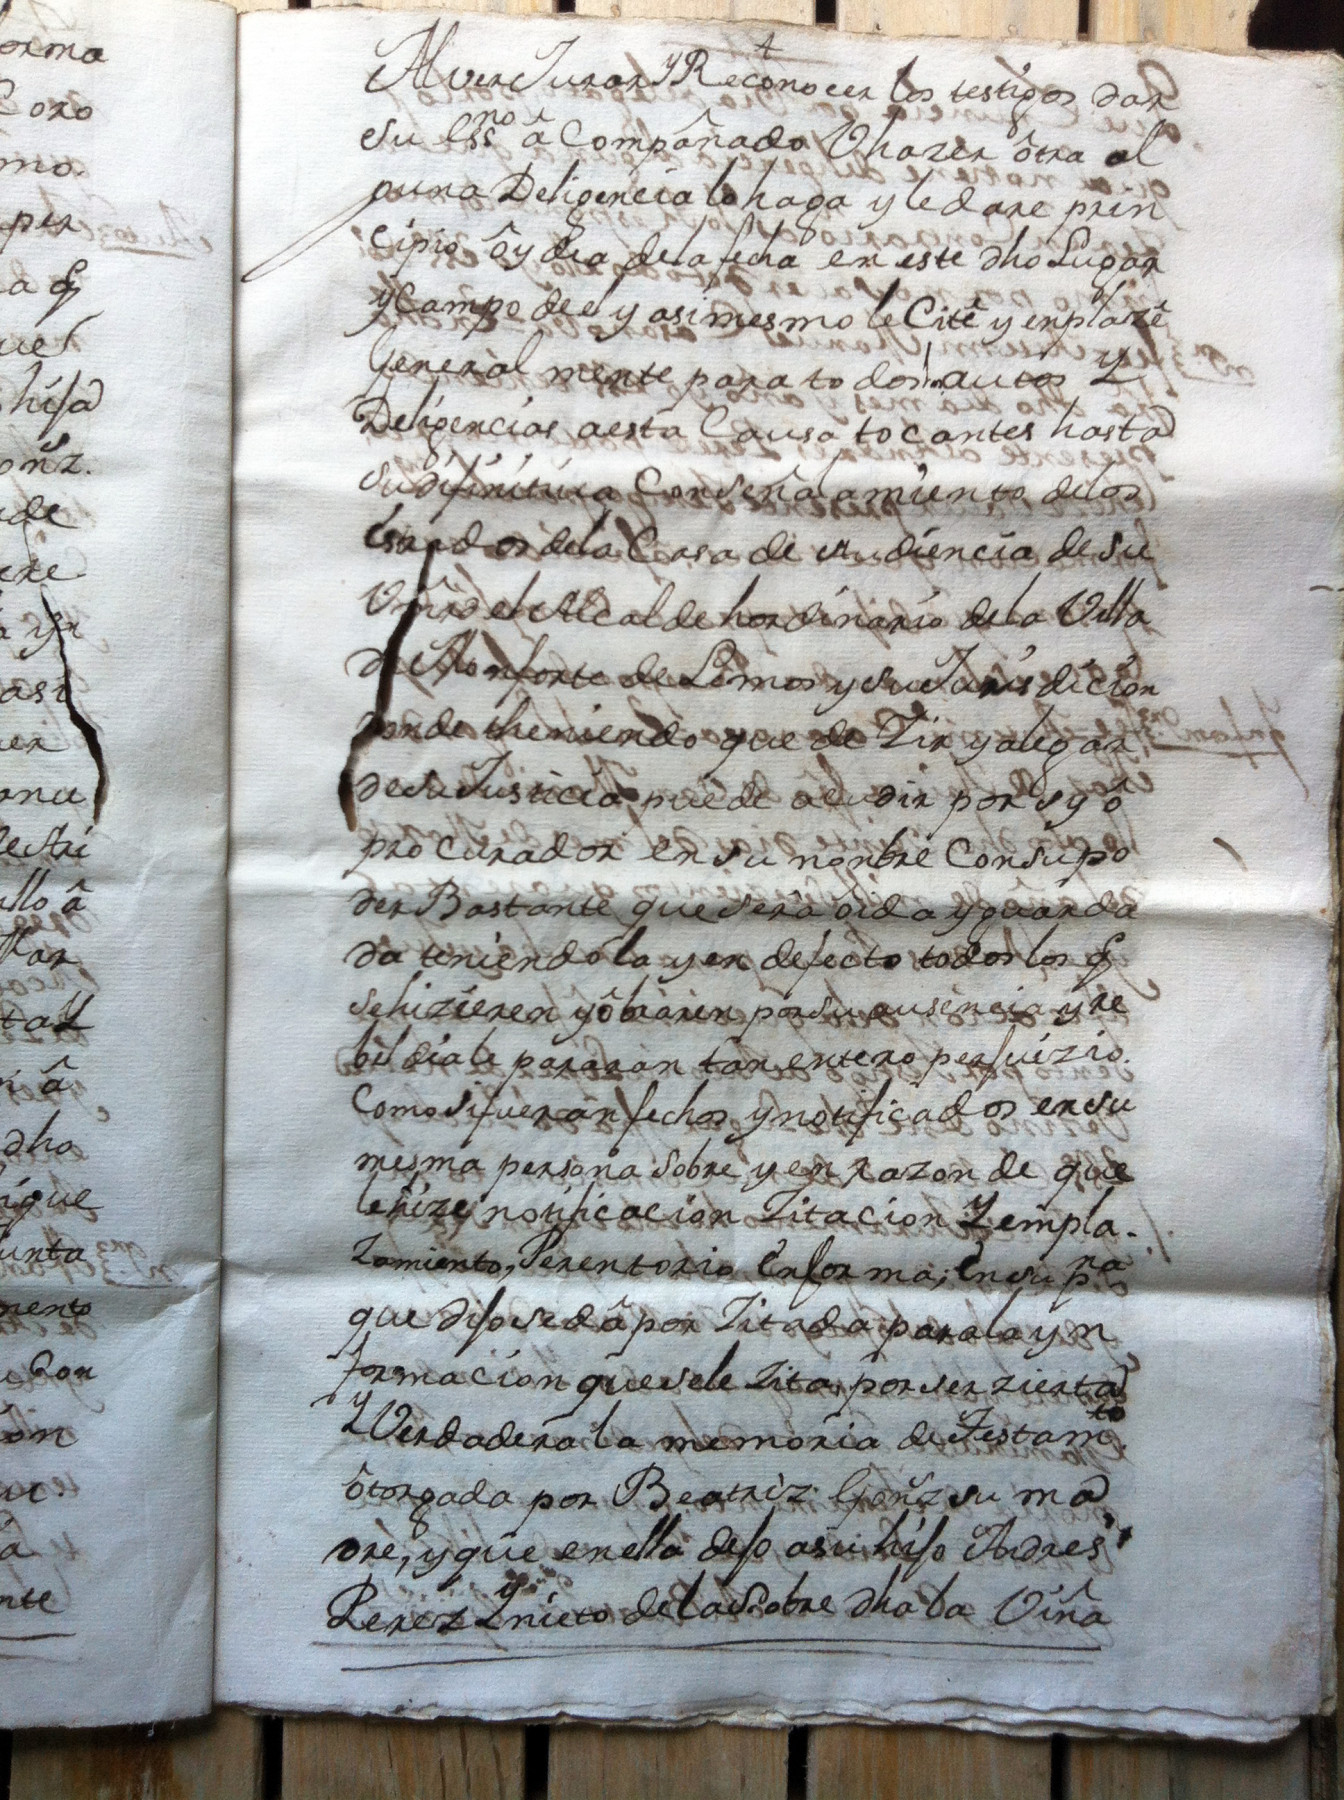 orma
Coro
mo.
per
a q
uel
hisa
onz.
de
ere
a yn
asi
er
anu
llo â
tal
n â
dho
ique
unta
mento
Don
on
a
nte
Al ver Jurar y Reconocer los testigos dar
su essno â Compañado U hazer ôtra al
guna Deligencia lo haga y le dare prin
cipio ôy dia dela fecha en este dho Lugar
y Campo deel y asi mesmo le Cite y enplaze
General mente para todos los autos y
Deligencias a esta Causa tocantes hasta
su difinitiva Con señalamiento delos
estrados dela Casa de Audiencia de su
Vmrd el Alcalde hordinario dela Villa
de Monforte de Lemos y su Jurisdicion
donde theniendo que de Zir y alegar
de su Justicia puede acudir por sy ô
procurador en su nonbre Con su po
der Bastante que sera oida y guarda
da teniendola y en defecto todos los q
se hizieren y ôbraren por su ausencia y re
beldia le pararan tan entero perjuizio.
Como si fueran fechos y notificados en su
mesma persona sobre y en razon de que
le hize notificacion Zitacion y empla.
zamiento, Perentorio en forma, en su pna
que dijo se dâ por Zitada para la yn
formacion que se le Zita, por ser zierta
y Verdadera la memoria de Testamto
ôtorgada por Beatriz Gonz su ma
dre, y que en ella dejo a su hijo Andres
Perez y nieto de la sobre dha la Viña